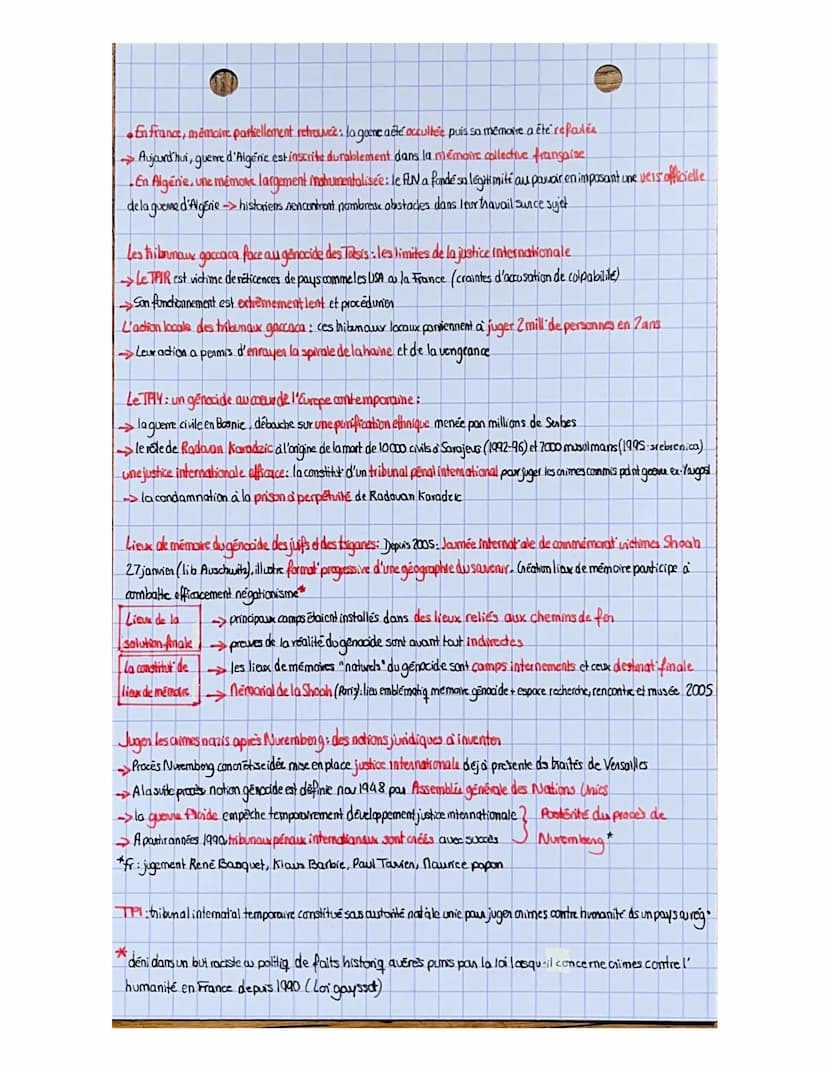 • En France, mémoire partiellement retrouvée : la guerre a été occultée puis sa mémoire a été refoulée
-> Aujourd'hui, guerre d'Algérie est inscrite durablement dans la mémoire collective française
• En Algérie, une mémoire largement instrumentalisée : le FLN a fondé sa légitimité au pouvoir en imposant une vers° officielle
de la guerre d'Algérie -> historiens rencontrent nombreux obstacles dans leur travail sur ce sujet
Les tribunaux gaccaca face au génocide des Tutsis : les limites de la justice internationale
-> Le TPIR est victime de réticences de pays comme les USA ou la France (craintes d'accusation de culpabilité)
-> Son fonctionnement est extrêmement lent et procédurier
L'action locale des tribunaux gaccaca : ces tribunaux locaux parviennent à juger 2 mill° de personnes en 7 ans
-> Leur action a permis d'enrayer la spirale de la haine et de la vengeance
Le TPIY : un génocide au cœur de l'Europe contemporaine :
-> la guerre civile en Bosnie, débouche sur une purification ethnique menée par millions de Serbes
-> le rôle de Radovan Karadzic à l'origine de la mort de 10 000 civils à Sarajevo (1992-96) et 7000 musulmans (1995 : srebrenica)
une justice internationale efficace : la constitut° d'un tribunal pénal international pour juger les crimes commis pdnt guerre ex-Yougosl
-> la condamnation à la prison à perpétuité de Radovan Karadzic
Lieux de mémoire du génocide des juifs et des tsiganes : Depuis 2005 : Journée internat°ale de commémorat° victimes Shoah
27 janvier (lib Auschwitz), illustre format° progressive d'une géographie du souvenir. Création lieux de mémoire participe à
combattre efficacement négationisme*
Lieux de la solution finale -> principaux camps étaient installés dans des lieux reliés aux chemins de fer
-> preuves de la réalité du génocide sont avant tout indirectes
La constitut° de lieux de mémoire -> les lieux de mémoires "naturels" du génocide sont camps internements et ceux destinat° finale
-> Mémorial de la Shoah (Paris) : lieu emblématiq mémoire génocide + espace recherche, rencontre et musée 2005
Juger les crimes nazis après Nuremberg : des notions juridiques à inventer
-> Procès Nuremberg concrétise idée mise en place justice internationale déjà présente ds traités de Versailles
-> A la suite procès notion génocide est définie nov 1948 par Assemblée générale des Nations Unies
-> la guerre froide empêche temporairement développement justice internationale } Postérité du procès de
-> A partir années 1990, tribunaux pénaux internationaux sont créés avec succès } Nuremberg*
*fr : jugement René Bousquet, Klaus Barbie, Paul Touvier, Maurice papon
TPI : tribunal internat°al temporaire constitué sous autorité nat°ale unie pour juger crimes contre humanité ds un pays ou rég°
* déni dans un but raciste ou politiq de faits historiq avérés punis par la loi lorsqu'il concerne crimes contre l'
humanité en France depuis 1990 (Loi gayssot)